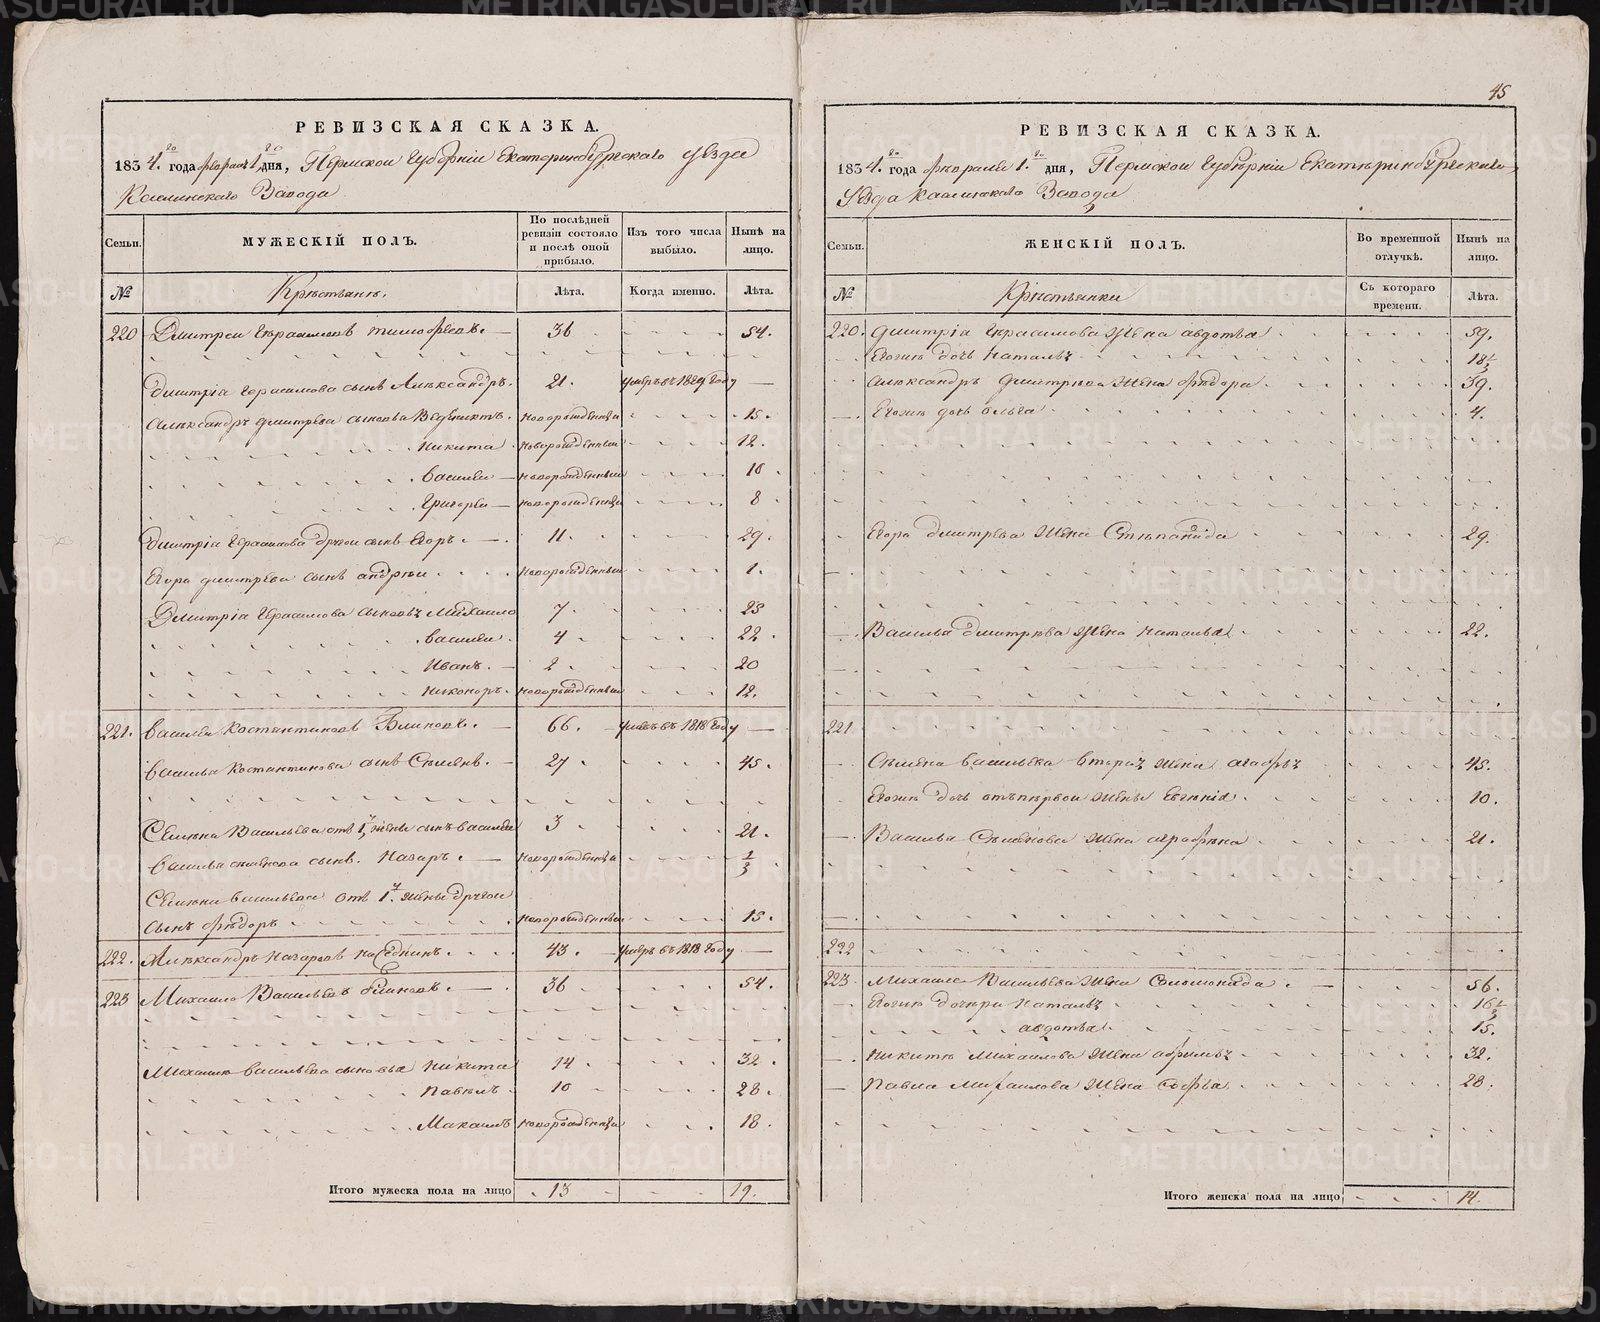 45
РЕВИЗСКАЯ СКАЗКА.
1834.го года февраля 1.го дня, Пермской Губерніи Екатеринбургскаго уѣзда
Каслинскаго Завода
Семьи. МУЖЕСКІЙ ПОЛЪ. По послѣдней ревизіи состояло и послѣ оной прибыло. Изъ того числа выбыло. Нынѣ на лицо.
№ Крѣстьянѣ. Лѣта. Когда именно. Лѣта.
220 Дмитреи Герасимовъ тимофеевъ. 36 54.
Дмитріа Герасимова сынъ Александръ. 21. умеръ въ 1829 году
Александръ дмитрева сыновья Веденихтъ. новорожденны 15.
никита новорожденныи 12.
василеи новорожденныи 10
Григореи новорожденны 8
Дмитріа Герасимова другои сынъ Егоръ. 11. 29.
Егора дмитрева сынъ андреи новорожденныи 1.
Дмитріа Герасимова сыновъ Михаило 7 25
василеи. 4 22.
Иванъ. 2 20
никоноръ. новорожденныи 12.
221. василеи костантиновъ Блиновъ. 66. умеръ въ 1818 году
васильа костантинова сынъ Семенъ. 27 45.
Семена Васильева отъ 1й жены сынъ василеи 3 21.
васильа семенова сынъ. Назаръ. новорожденны 1/3
Семена васильева отъ 1й жены другои
сынъ федоръ новорожденныи 15.
222. Александръ назаровъ наседкинъ. 43. умеръ въ 1818 году
223 Михаило Васильевъ блиновъ. 36 54.
Михаила васильева сыновьа никита 14 32.
Павелъ. 10 28.
Макаимъ новорожденны 18.
Итого мужеска пола на лицо 13 19.
РЕВИЗСКАЯ СКАЗКА.
1834.го года февралиа 1.го дня, Пермской Губерніи Екатеринбургскаго
Уѣзда каслинскаго Завода
Семьи. ЖЕНСКІЙ ПОЛЪ. Во временной отлучкѣ. Нынѣ на лицо.
№ Крѣстьянки Съ котораго времени. Лѣта.
220. дмитріа Герасимова жена авдотьа 59.
Егоже дочь наталья 18 1/2
александръ дмитрева жена федора 39.
Егоже дочь ольга 4.
Егора дмитрева жена Степанида 29.
Васильа дмитрева жена наталья 22.
221
Семена васильева вторая жена агафья 45.
Егоже дочь отъ первои жены Евгениа 10.
Васильа Семенова жена аграфена 21.
222
223. михаила Васильева жена Соломонида 56.
Егоже дочери наталья 16 1/2
авдотьа 15.
никиты михаилова жена 32.
Павла михаилова жена Софьа 28.
Итого женска пола на лицо 14.
METRIKI.GASO-URAL.RU